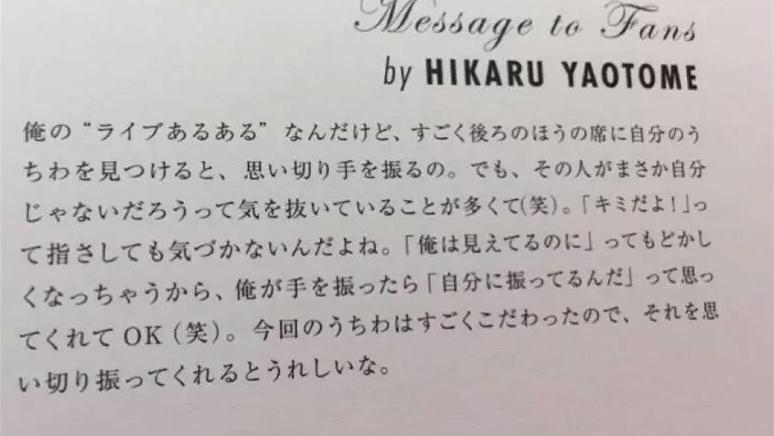 Message to Fans
by HIKARU YAOTOME
俺の“ライブあるある”なんだけど、すごく後ろのほうの席に自分のう
ちわを見つけると、思い切り手を振るの。でも、その人がまさか自分
じゃないだろうって気を抜いていることが多くて(笑)。「キミだよ!」っ
て指さしても気づかないんだよね。「俺は見えてるのに」ってもどかし
くなっちゃうから、俺が手を振ったら「自分に振ってるんだ」って思っ
てくれてOK(笑)。今回のうちわはすごくこだわったので、それを思
い切り振ってくれるとうれしいな。